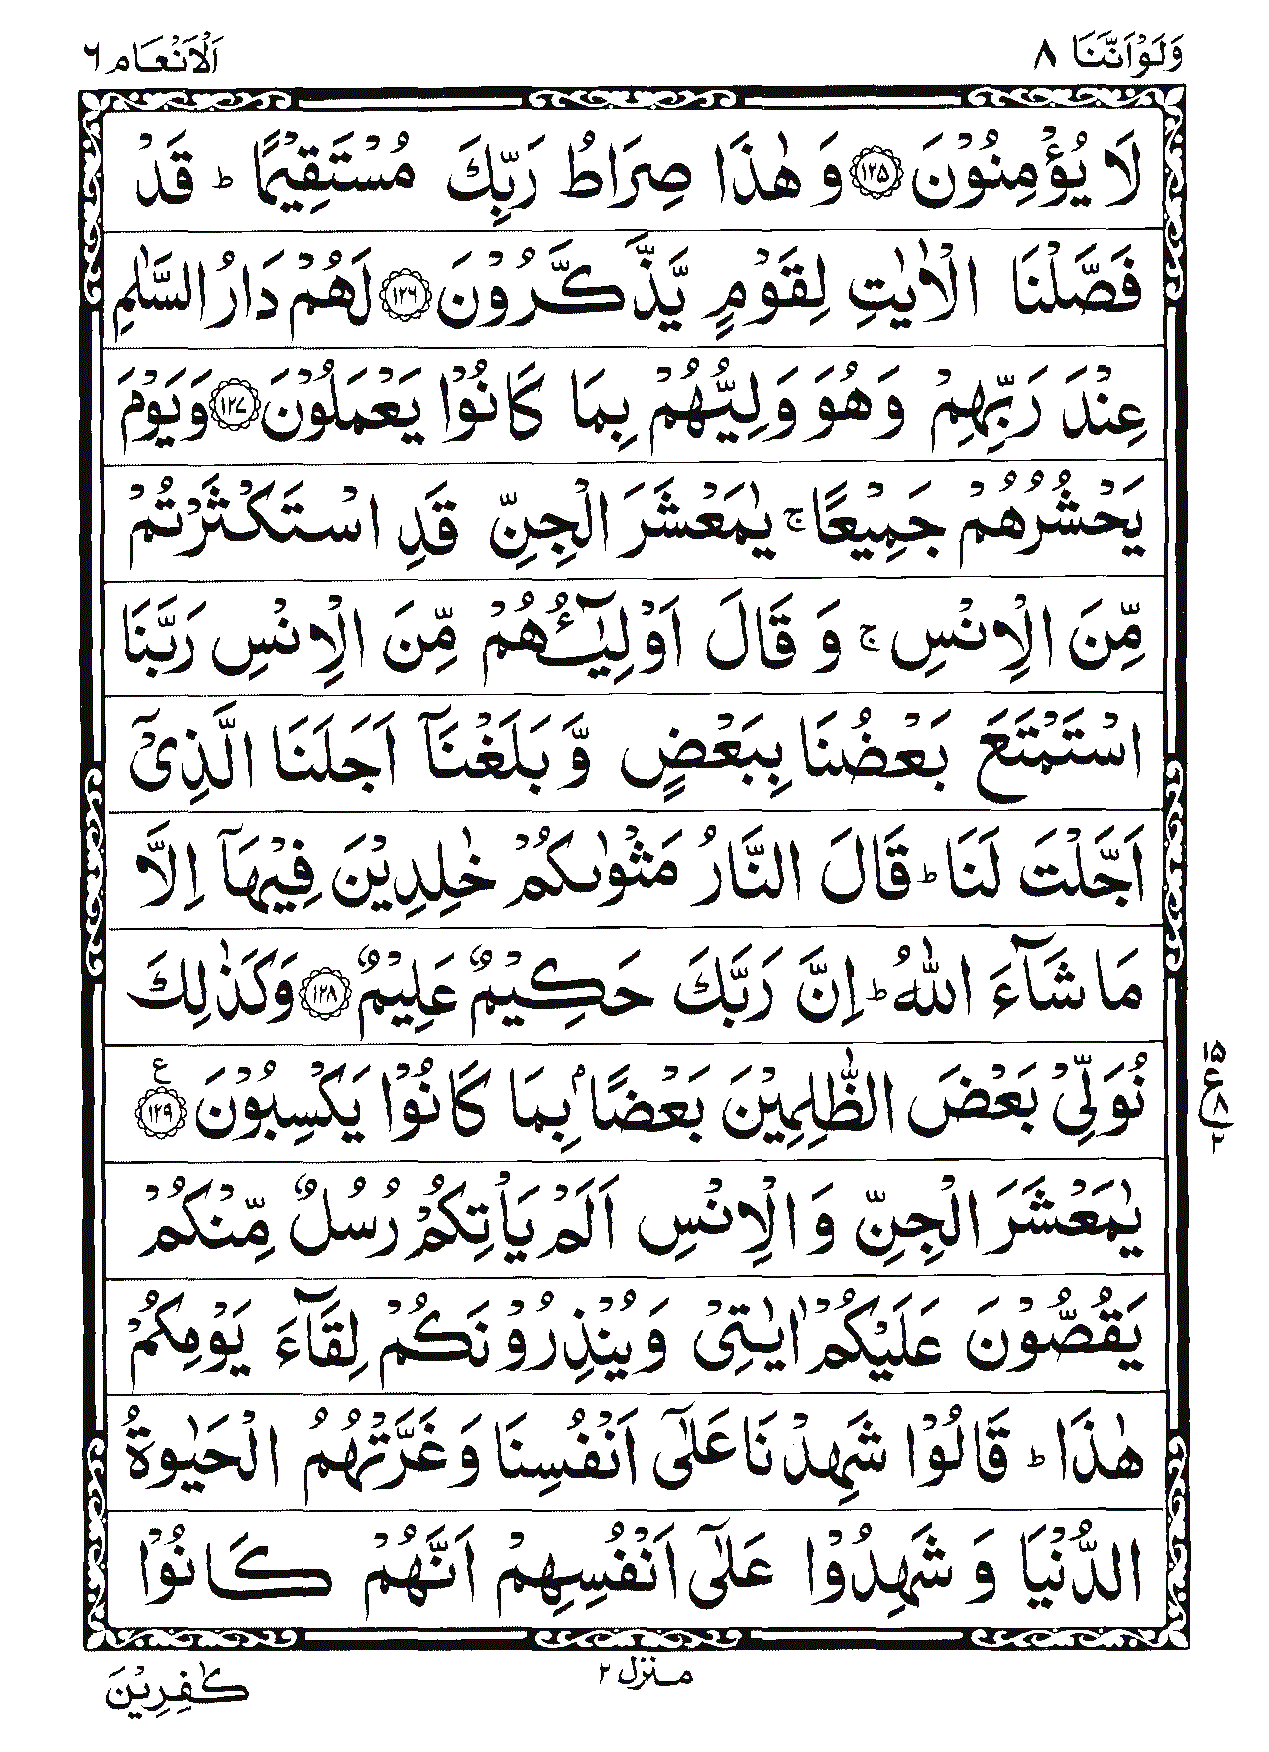 وَلَوْاَنَّنَا ٨
اَلْاَنْعَام ٦
لَا يُؤْمِنُوْنَ ﴿۱۲۵﴾ وَ هٰذَا صِرَاطُ رَبِّكَ مُسْتَقِيْمًا ؕ قَدْ
فَصَّلْنَا الْاٰيٰتِ لِقَوْمٍ يَّذَّكَّرُوْنَ ﴿۱۲۶﴾ لَهُمْ دَارُ السَّلٰمِ
عِنْدَ رَبِّهِمْ وَهُوَ وَلِيُّهُمْ بِمَا كَانُوْا يَعْمَلُوْنَ ﴿۱۲۷﴾ وَيَوْمَ
يَحْشُرُهُمْ جَمِيْعًا ۚ يٰمَعْشَرَ الْجِنِّ قَدِ اسْتَكْثَرْتُمْ
مِّنَ الْاِنْسِ ۚ وَ قَالَ اَوْلِيٰٓـُٔهُمْ مِّنَ الْاِنْسِ رَبَّنَا
اسْتَمْتَعَ بَعْضُنَا بِبَعْضٍ وَّ بَلَغْنَاۤ اَجَلَنَا الَّذِىْۤ
اَجَّلْتَ لَنَا ؕ قَالَ النَّارُ مَثْوٰىكُمْ خٰلِدِيْنَ فِيْهَاۤ اِلَّا
مَا شَآءَ اللّٰهُ ؕ اِنَّ رَبَّكَ حَكِيْمٌ عَلِيْمٌ ﴿۱۲۸﴾ وَكَذٰلِكَ
نُوَلِّىْ بَعْضَ الظّٰلِمِيْنَ بَعْضًاۢ بِمَا كَانُوْا يَكْسِبُوْنَ ﴿۱۲۹﴾ ع
۱۵
ع ۸
۲
يٰمَعْشَرَ الْجِنِّ وَ الْاِنْسِ اَلَمْ يَاْتِكُمْ رُسُلٌ مِّنْكُمْ
يَقُصُّوْنَ عَلَيْكُمْ اٰيٰتِىْ وَيُنْذِرُوْنَكُمْ لِقَآءَ يَوْمِكُمْ
هٰذَا ؕ قَالُوْا شَهِدْنَا عَلٰٓى اَنْفُسِنَا وَ غَرَّتْهُمُ الْحَيٰوةُ
الدُّنْيَا وَ شَهِدُوْا عَلٰٓى اَنْفُسِهِمْ اَنَّهُمْ كَانُوْا
منزل ۲
كٰفِرِيْنَ